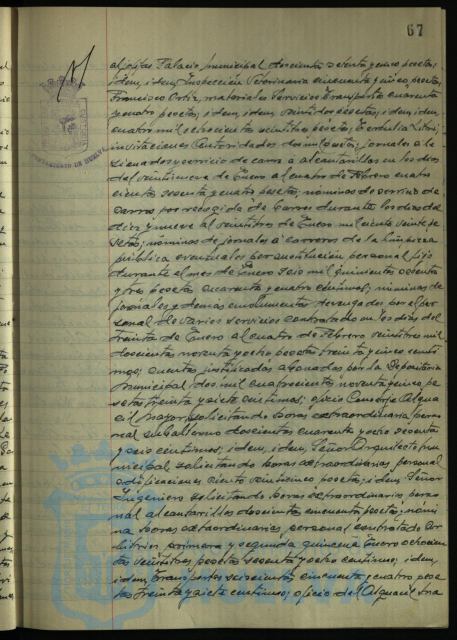 67
aljofifar Palacio municipal doscientas setenta y cinco pesetas;
idem, idem, Inspección Veterinaria cincuenta y cinco pesetas;
Francisco Ortiz, materiales Servicios Transportes cuarenta
y cuatro pesetas; idem, idem, veintidos pesetas; idem, idem,
cuatro mil ochocientas veintitres pesetas; Tertulia Litri,
invitaciones Autoridades dos mil pesetas; jornales a la
y servicio de carros a alcantarillas en los dias
del veintinueve de Enero al cuatro de Febrero cuatro
cientas sesenta y cuatro pesetas; nóminas de servicio de
carros por recogida de barros durante los dias del
diez y nueve al veintitres de Enero mil ciento veinte pe
setas; nóminas de jornales a carreros de la limpieza
pública eventuales por sustitución personal fijo
durante el mes de Enero seis mil quinientas ochenta
y tres pesetas cuarenta y cuatro céntimos; nóminas de
jornales y demás emolumentos devengados por el per
sonal de varios servicios contratado en los dias del
treinta de Enero al cuatro de Febrero veintitres mil
doscientas noventa y ocho pesetas treinta y cinco cénti
mos; cuentas justificadas abonadas por la Depositaria
municipal dos mil cuatrocientas noventa y cinco pe
setas treinta y siete céntimos; oficio Conserje Algua
cil Mayor, solicitando horas extraordinarias perso
nal subalterno doscientas cuarenta y ocho sesenta
y seis céntimos; idem, idem, Señor Arquitecto mu
nicipal solicitando horas extraordinarias personal
edificaciones ciento veinticinco pesetas; idem Señor
Ingeniero solicitando horas extraordinarias perso
nal alcantarillas doscientas cincuenta pesetas; nómi
na horas extraordinarias personal contratado Ar
bitrios, primera y segunda quincena Enero ochocien
tas veintitres pesetas sesenta y ocho céntimos; idem,
idem, Transportes seiscientas cincuenta y cuatro pese
tas treinta y siete céntimos; oficio del Alguacil